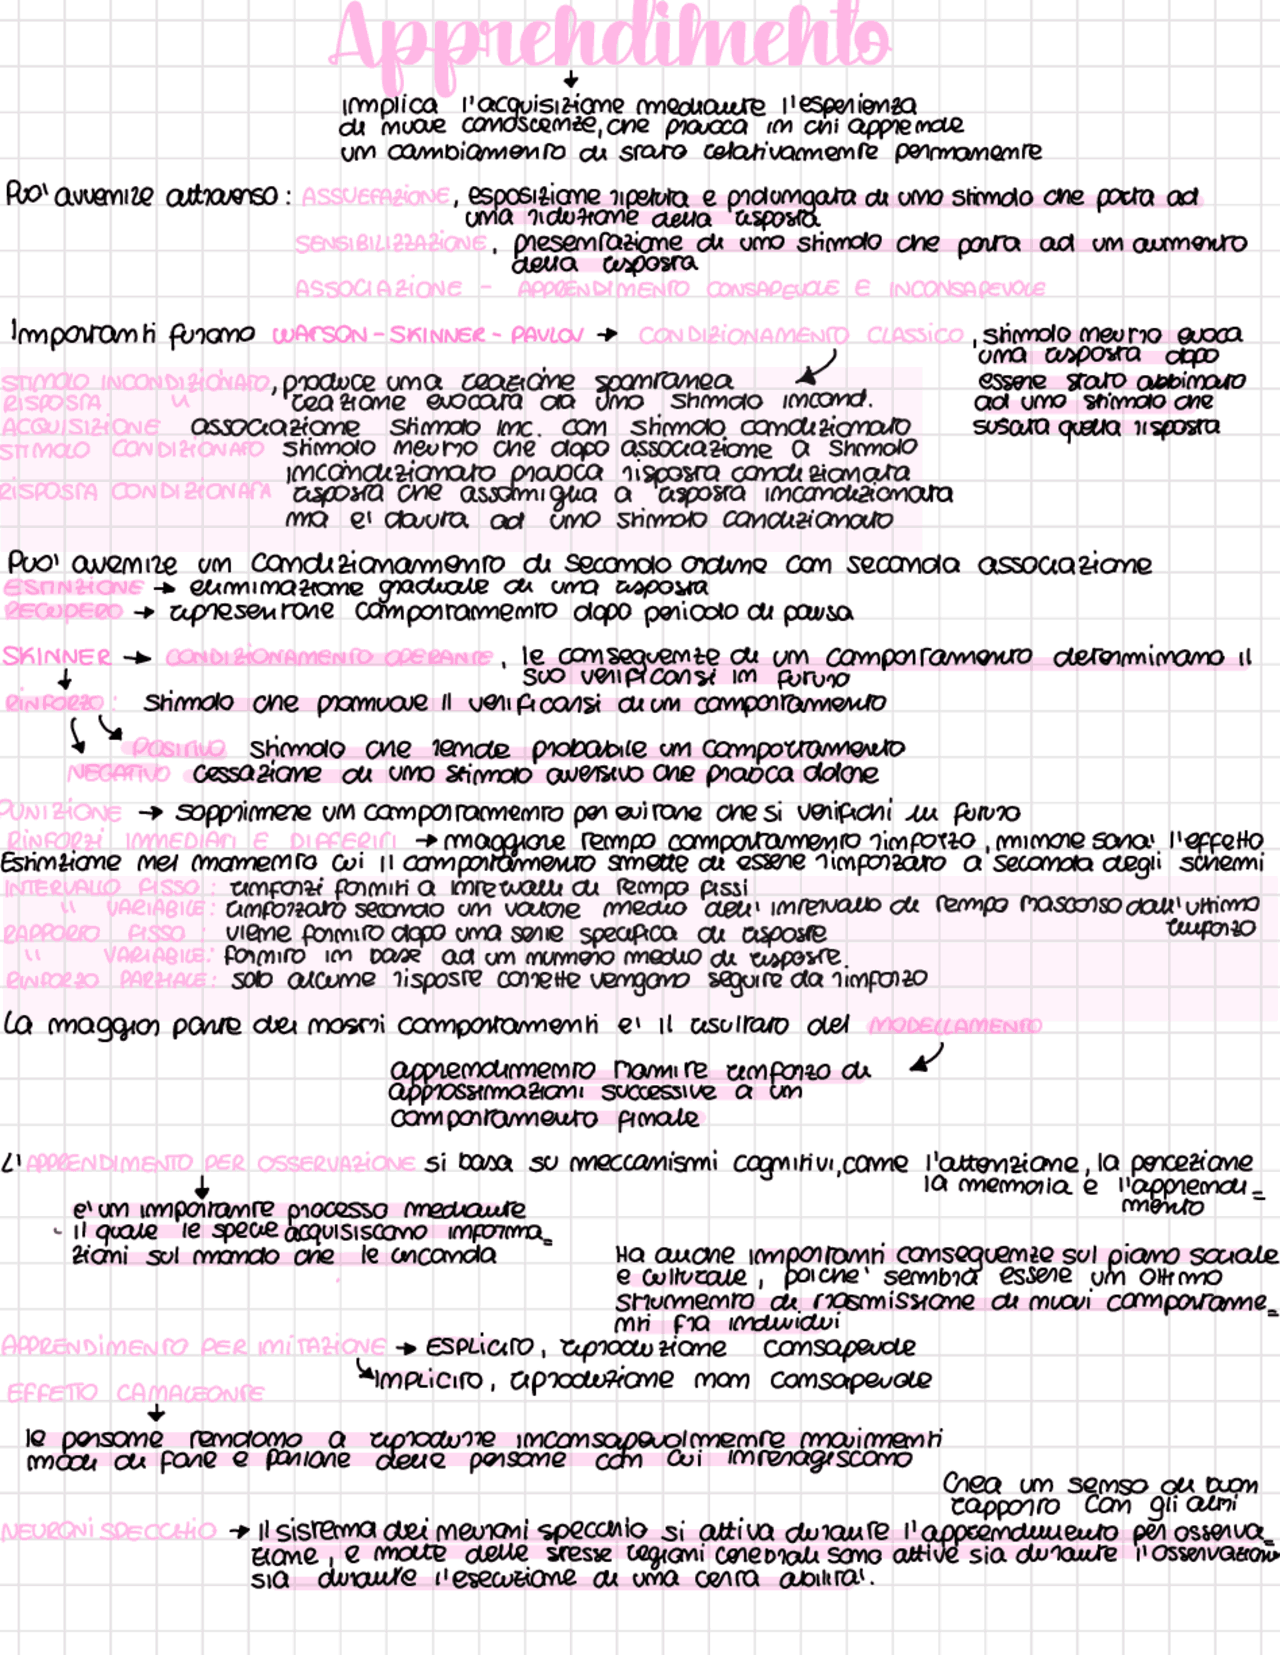 Apprendimento
implica l'acquisizione mediante l'esperienza
di nuove conoscenze, che provoca in chi apprende
un cambiamento di stato relativamente permanente
Puo' avvenire attraverso: ASSUEFAZIONE, esposizione ripetuta e prolungata di uno stimolo che porta ad
una riduzione della risposta
SENSIBILIZZAZIONE, presentazione di uno stimolo che porta ad un aumento
della risposta
ASSOCIAZIONE - APPRENDIMENTO CONSAPEVOLE E INCONSAPEVOLE
Importanti furono WATSON-SKINNER-PAVLOV → CONDIZIONAMENTO CLASSICO, stimolo neutro evoca
una risposta dopo
essere stato abbinato
ad uno stimolo che
suscita quella risposta
STIMOLO INCONDIZIONATO, produce una reazione spontanea
RISPOSTA " reazione evocata da uno stimolo incond.
ACQUISIZIONE associazione stimolo inc. con stimolo condizionato
STIMOLO CONDIZIONATO stimolo neutro che dopo associazione a stimolo
incondizionato provoca risposta condizionata
RISPOSTA CONDIZIONATA risposta che assomiglia a risposta incondizionata
ma e' dovuta ad uno stimolo condizionato
Puo' avvenire un condizionamento di secondo ordine con seconda associazione
ESTINZIONE → eliminazione graduale di una risposta
RECUPERO → ripresentare comportamento dopo periodo di pausa
SKINNER → CONDIZIONAMENTO OPERANTE, le conseguenze di un comportamento determinano il
suo verificarsi in futuro
RINFORZO: stimolo che promuove il verificarsi di un comportamento
POSITIVO stimolo che rende probabile un comportamento
NEGATIVO cessazione di uno stimolo aversivo che provoca dolore
PUNIZIONE → sopprimere un comportamento per evitare che si verifichi in futuro
RINFORZI IMMEDIATI E DIFFERITI → maggiore tempo comportamento rinforzo, minore sara' l'effetto
Estinzione nel momento cui il comportamento smette di essere rinforzato a seconda degli schemi
INTERVALLO FISSO: rinforzi forniti a intervalli di tempo fissi
" VARIABILE: rinforzato secondo un valore medio dell'intervallo di tempo trascorso dall'ultimo
rinforzo
RAPPORTO FISSO: viene fornito dopo una serie specifica di risposte
" VARIABILE: fornito in base ad un numero medio di risposte.
RINFORZO PARZIALE: solo alcune risposte corrette vengono seguite da rinforzo
La maggior parte dei nostri comportamenti e' il risultato del MODELLAMENTO
apprendimento tramite rinforzo di
approssimazioni successive a un
comportamento finale
L'APPRENDIMENTO PER OSSERVAZIONE si basa su meccanismi cognitivi, come l'attenzione, la percezione
la memoria e l'apprendi=
mento
e' un importante processo mediante
il quale le specie acquisiscono informa=
zioni sul mondo che le circonda
Ha anche importanti conseguenze sul piano sociale
e culturale, poiche' sembra essere un ottimo
strumento di trasmissione di nuovi comportame=
nti fra individui
APPRENDIMENTO PER IMITAZIONE → ESPLICITO, riproduzione consapevole
IMPLICITO, riproduzione non consapevole
EFFETTO CAMALEONTE
le persone tendono a riprodurre inconsapevolmente movimenti
modi di fare e parlare delle persone con cui interagiscono
Crea un senso di buon
rapporto con gli altri
NEURONI SPECCHIO → il sistema dei neuroni specchio si attiva durante l'apprendimento per osserva=
zione, e molte delle stesse regioni cerebrali sono attive sia durante l'osservazione
sia durante l'esecuzione di una certa abilita'.